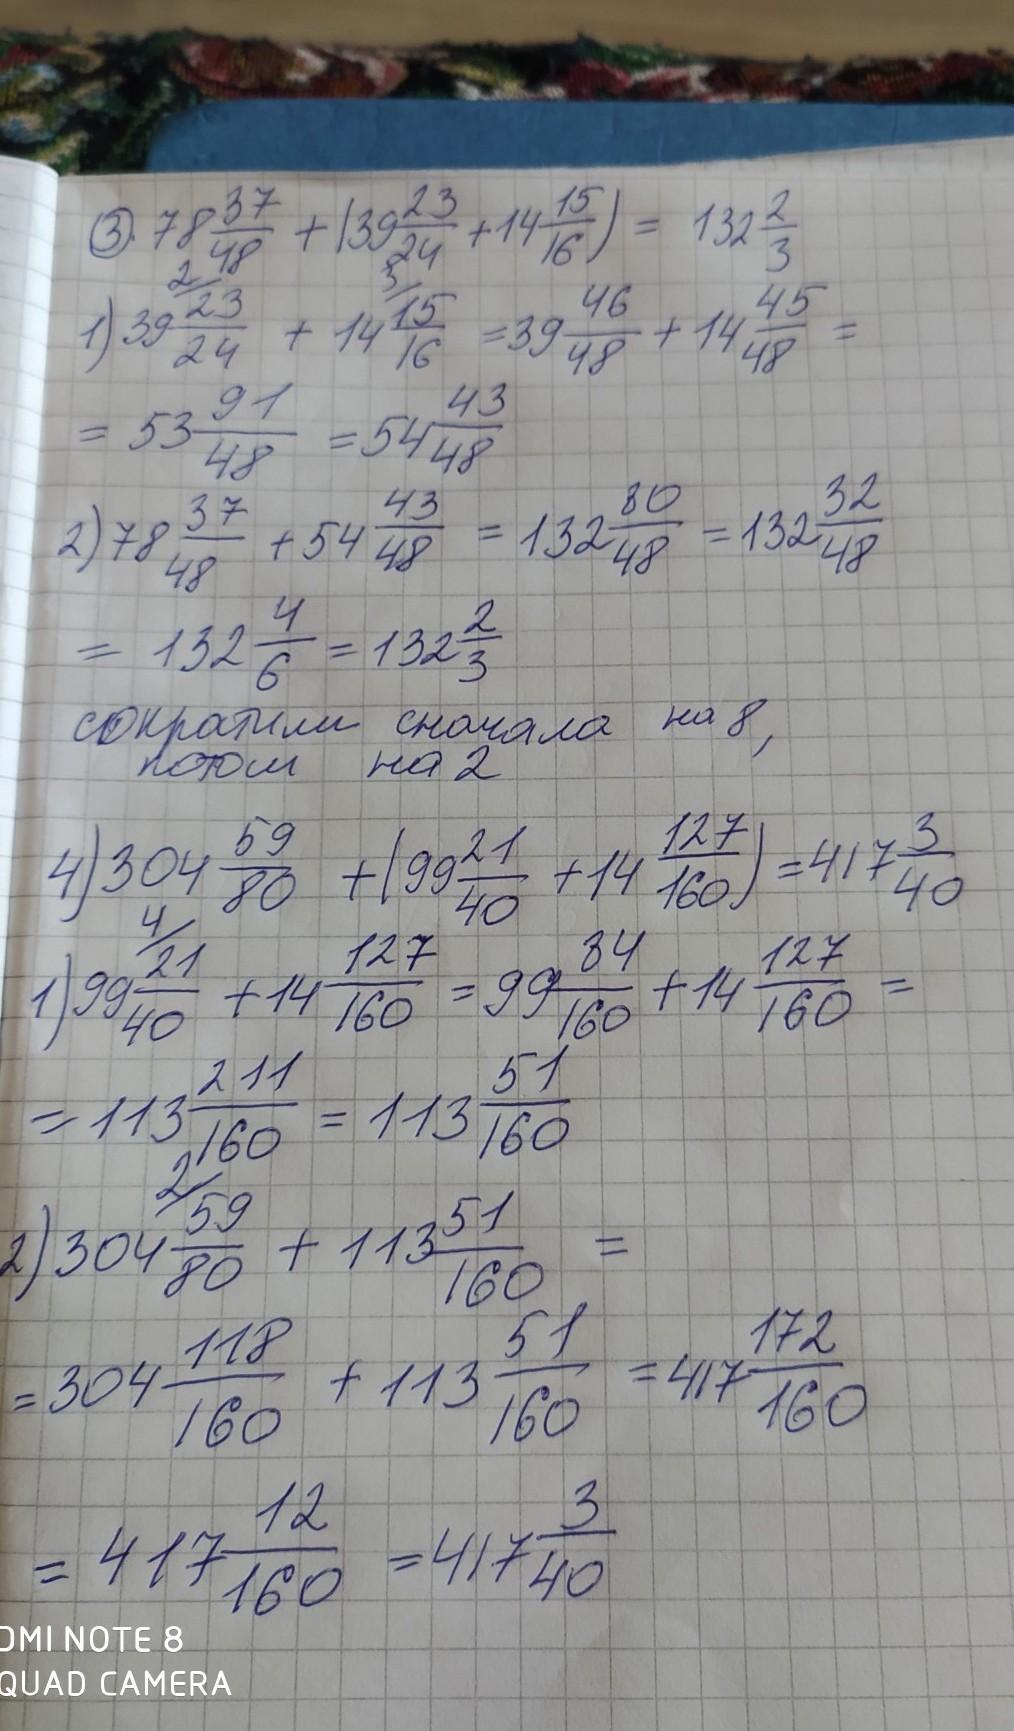 ③. 78 37/48 + (39 23/24 + 14 15/16) = 132 2/3
1) 39 2/ 23/24 + 14 3/ 15/16 = 39 46/48 + 14 45/48 =
= 53 91/48 = 54 43/48
2) 78 37/48 + 54 43/48 = 132 80/48 = 132 32/48
= 132 4/6 = 132 2/3
сократили сначала на 8,
потом на 2
4) 304 59/80 + (99 21/40 + 14 127/160) = 417 3/40
1) 99 4/ 21/40 + 14 127/160 = 99 84/160 + 14 127/160 =
= 113 211/160 = 113 51/160
2) 304 2/ 59/80 + 113 51/160 =
= 304 118/160 + 113 51/160 = 417 172/160
= 417 12/160 = 417 3/40
DMI NOTE 8
QUAD CAMERA